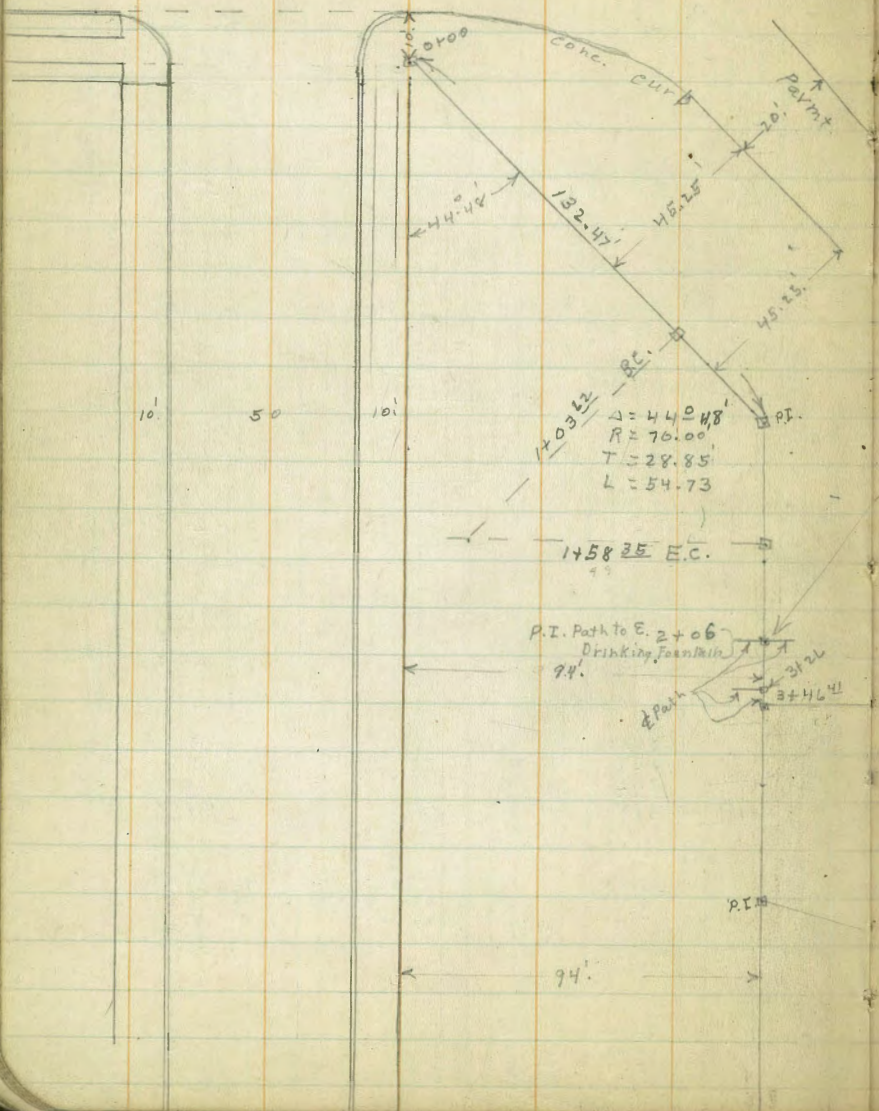 10'
0+00
conc. curb
Parmt
20'
44°-48'
132.47'
45.25'
45.25'
10'
50
10'
1+03 22 B.C.
Δ = 44° 48'
R = 70.00'
T = 28.85'
L = 54.73
P.I.
1+58 35 E.C.
P.I. Path to E. 2+06
Drinking Fountain
94'.
℄ Path
3+26
3+46 41
P.I.
94'.